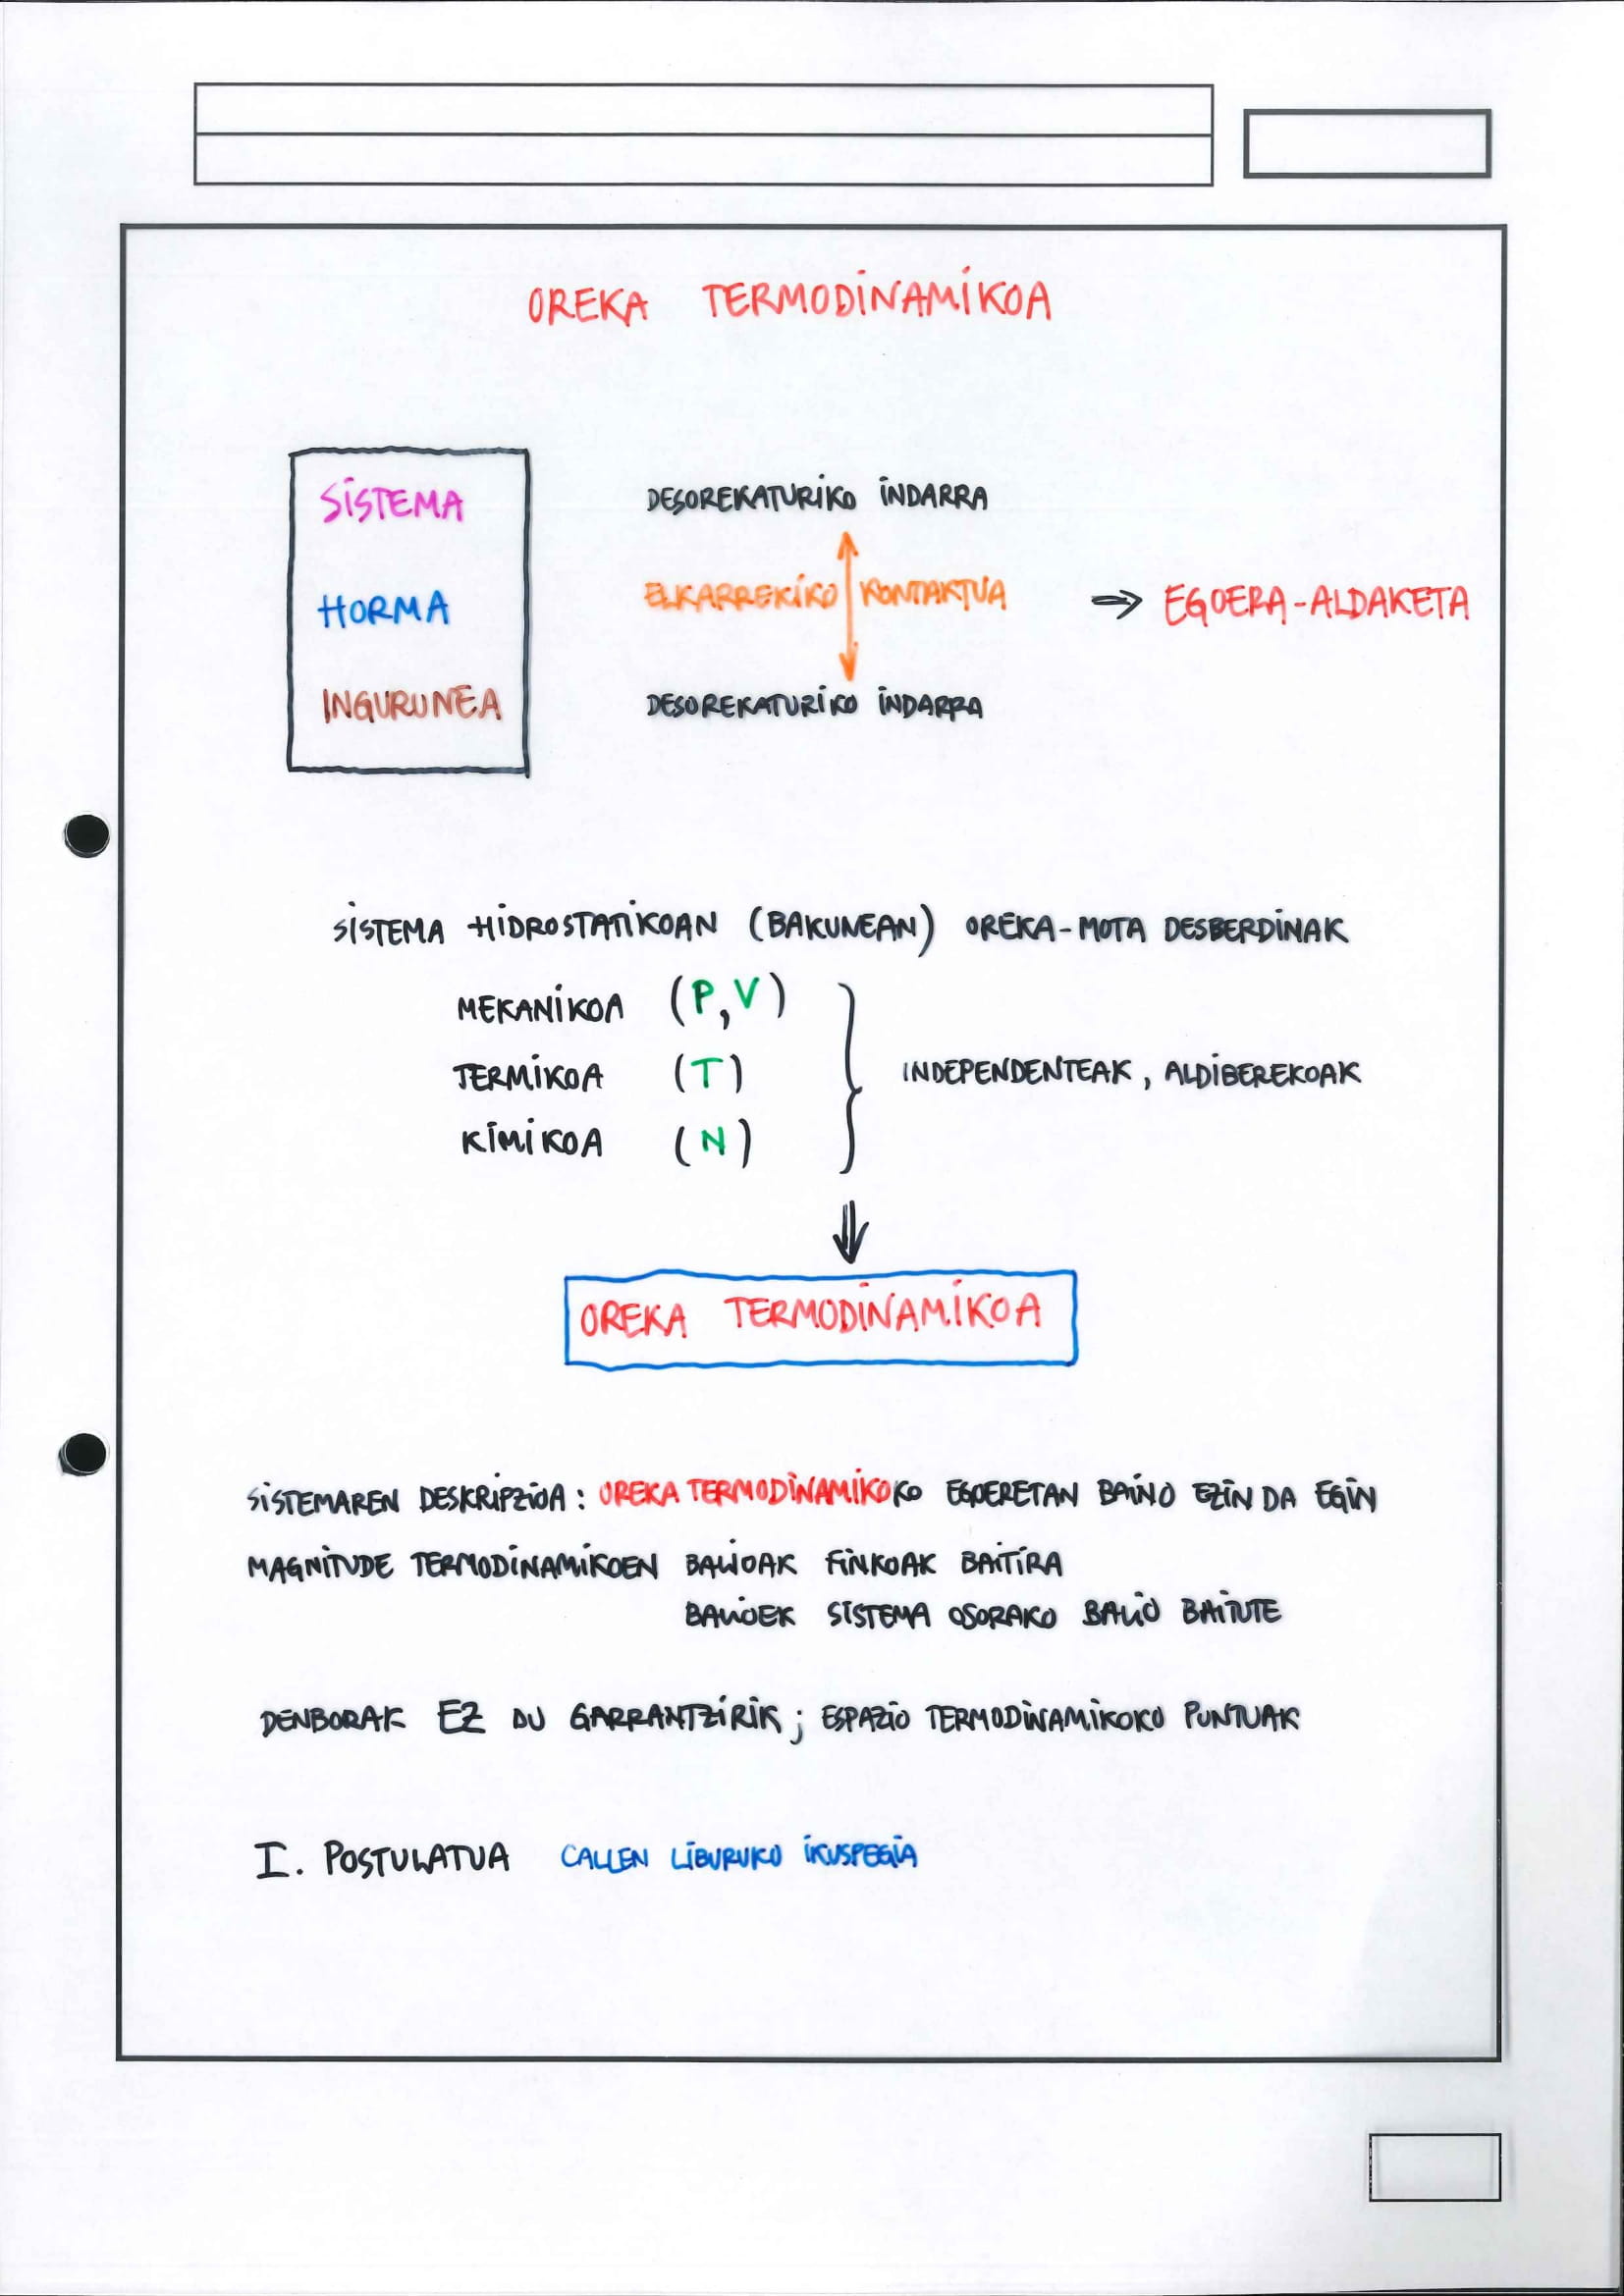 OREKA TERMODINAMIKOA
SISTEMA
DESOREKATURIKO INDARRA
HORMA
ELKARREKIKO KONTAKTUA ⇒ EGOERA-ALDAKETA
INGURUNEA
DESOREKATURIKO INDARRA
SISTEMA HIDROSTATIKOAN (BAKUNEAN) OREKA-MOTA DESBERDINAK
MEKANIKOA (P,V)
TERMIKOA (T)
INDEPENDENTEAK, ALDIBEREKOAK
KIMIKOA (N)
OREKA TERMODINAMIKOA
SISTEMAREN DESKRIPZIOA: OREKA TERMODINAMIKOKO EGOERETAN BAINO EZIN DA EGIN
MAGNITUDE TERMODINAMIKOEN BALIOAK FINKOAK BAITIRA
BALIOEK SISTEMA OSORAKO BALIO BAITUTE
DENBORAK EZ DU GARRANTZIRIK; ESPAZIO TERMODINAMIKOKO PUNTUAK
I. POSTULATUA CALLEN LIBURUKO IKUSPEGIA